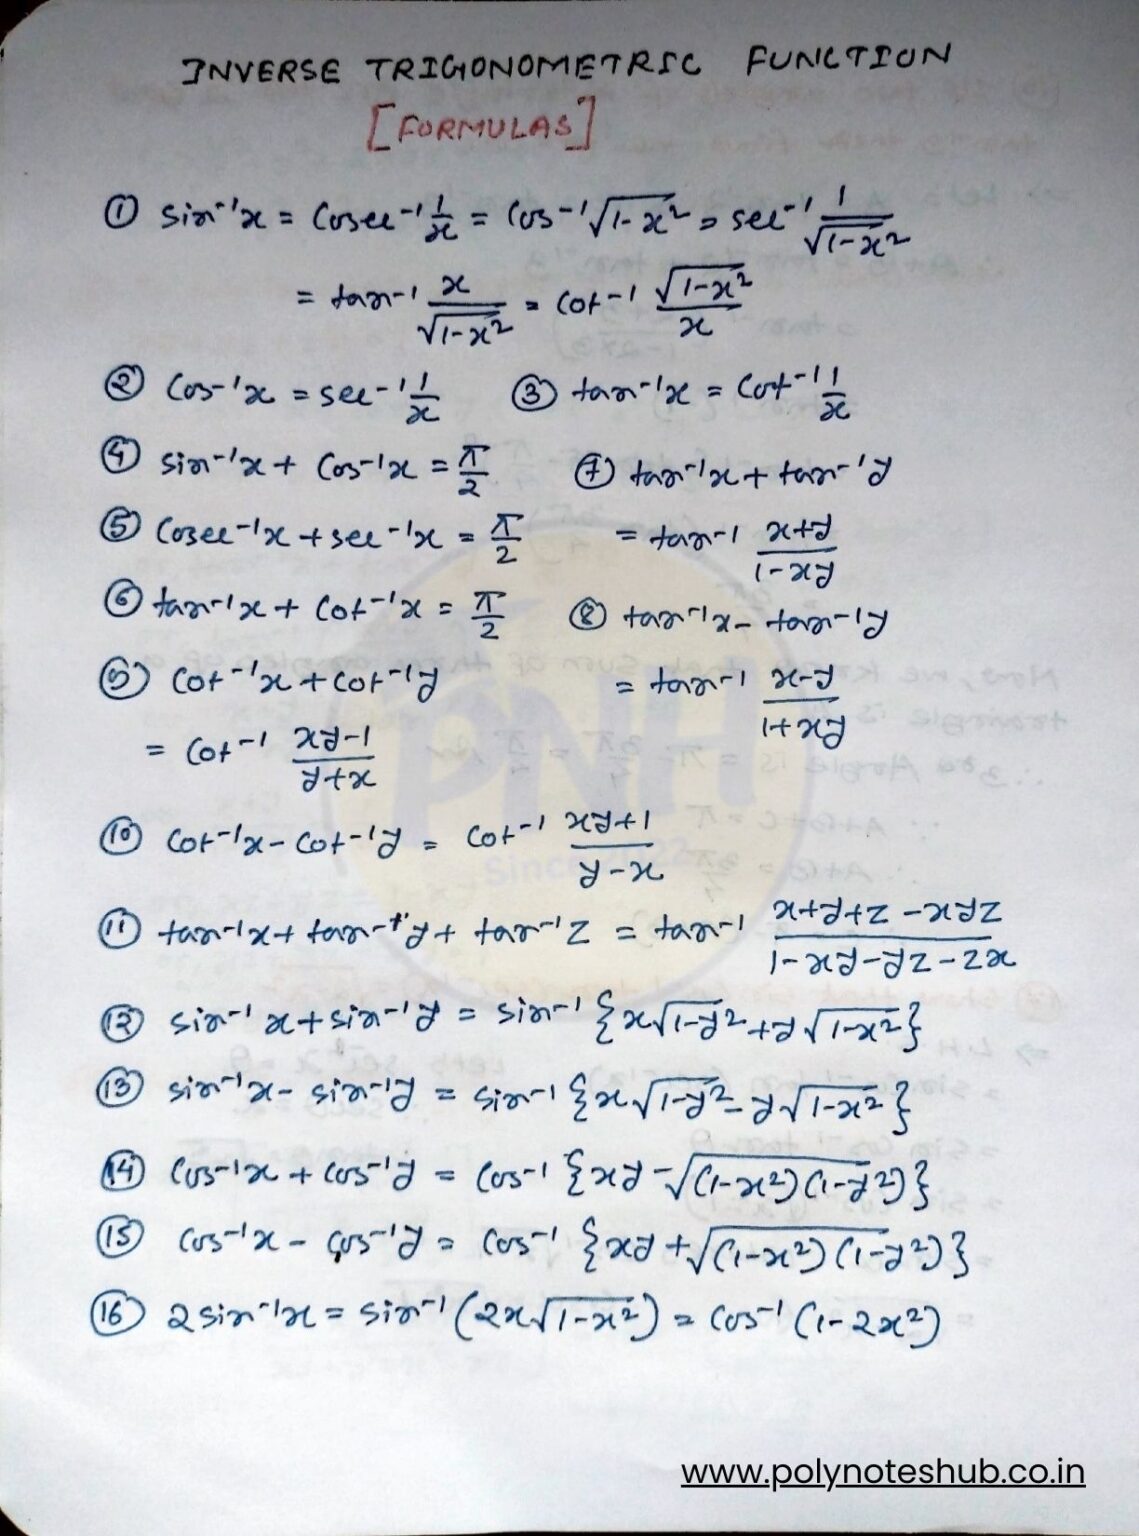 INVERSE TRIGONOMETRIC FUNCTION
[FORMULAS]
① sin⁻¹x = Cosec⁻¹ 1/x = Cos⁻¹ √(1-x²) = sec⁻¹ 1/√(1-x²)
= tan⁻¹ x/√(1-x²) = Cot⁻¹ √(1-x²)/x
② Cos⁻¹x = sec⁻¹ 1/x ③ tan⁻¹x = Cot⁻¹ 1/x
④ sin⁻¹x + Cos⁻¹x = π/2 ⑦ tan⁻¹x + tan⁻¹y
⑤ Cosec⁻¹x + sec⁻¹x = π/2 = tan⁻¹ (x+y)/(1-xy)
⑥ tan⁻¹x + Cot⁻¹x = π/2 ⑧ tan⁻¹x - tan⁻¹y
⑨ Cot⁻¹x + Cot⁻¹y = tan⁻¹ (x-y)/(1+xy)
= Cot⁻¹ (xy-1)/(y+x)
⑩ Cot⁻¹x - Cot⁻¹y = Cot⁻¹ (xy+1)/(y-x)
⑪ tan⁻¹x + tan⁻¹y + tan⁻¹z = tan⁻¹ (x+y+z-xyz)/(1-xy-yz-zx)
⑫ sin⁻¹x + sin⁻¹y = sin⁻¹ {x√(1-y²) + y√(1-x²)}
⑬ sin⁻¹x - sin⁻¹y = sin⁻¹ {x√(1-y²) - y√(1-x²)}
⑭ Cos⁻¹x + Cos⁻¹y = Cos⁻¹ {xy - √((1-x²)(1-y²))}
⑮ Cos⁻¹x - Cos⁻¹y = Cos⁻¹ {xy + √((1-x²)(1-y²))}
⑯ 2sin⁻¹x = sin⁻¹ (2x√(1-x²)) = Cos⁻¹ (1-2x²)
PNH
www.polynoteshub.co.in